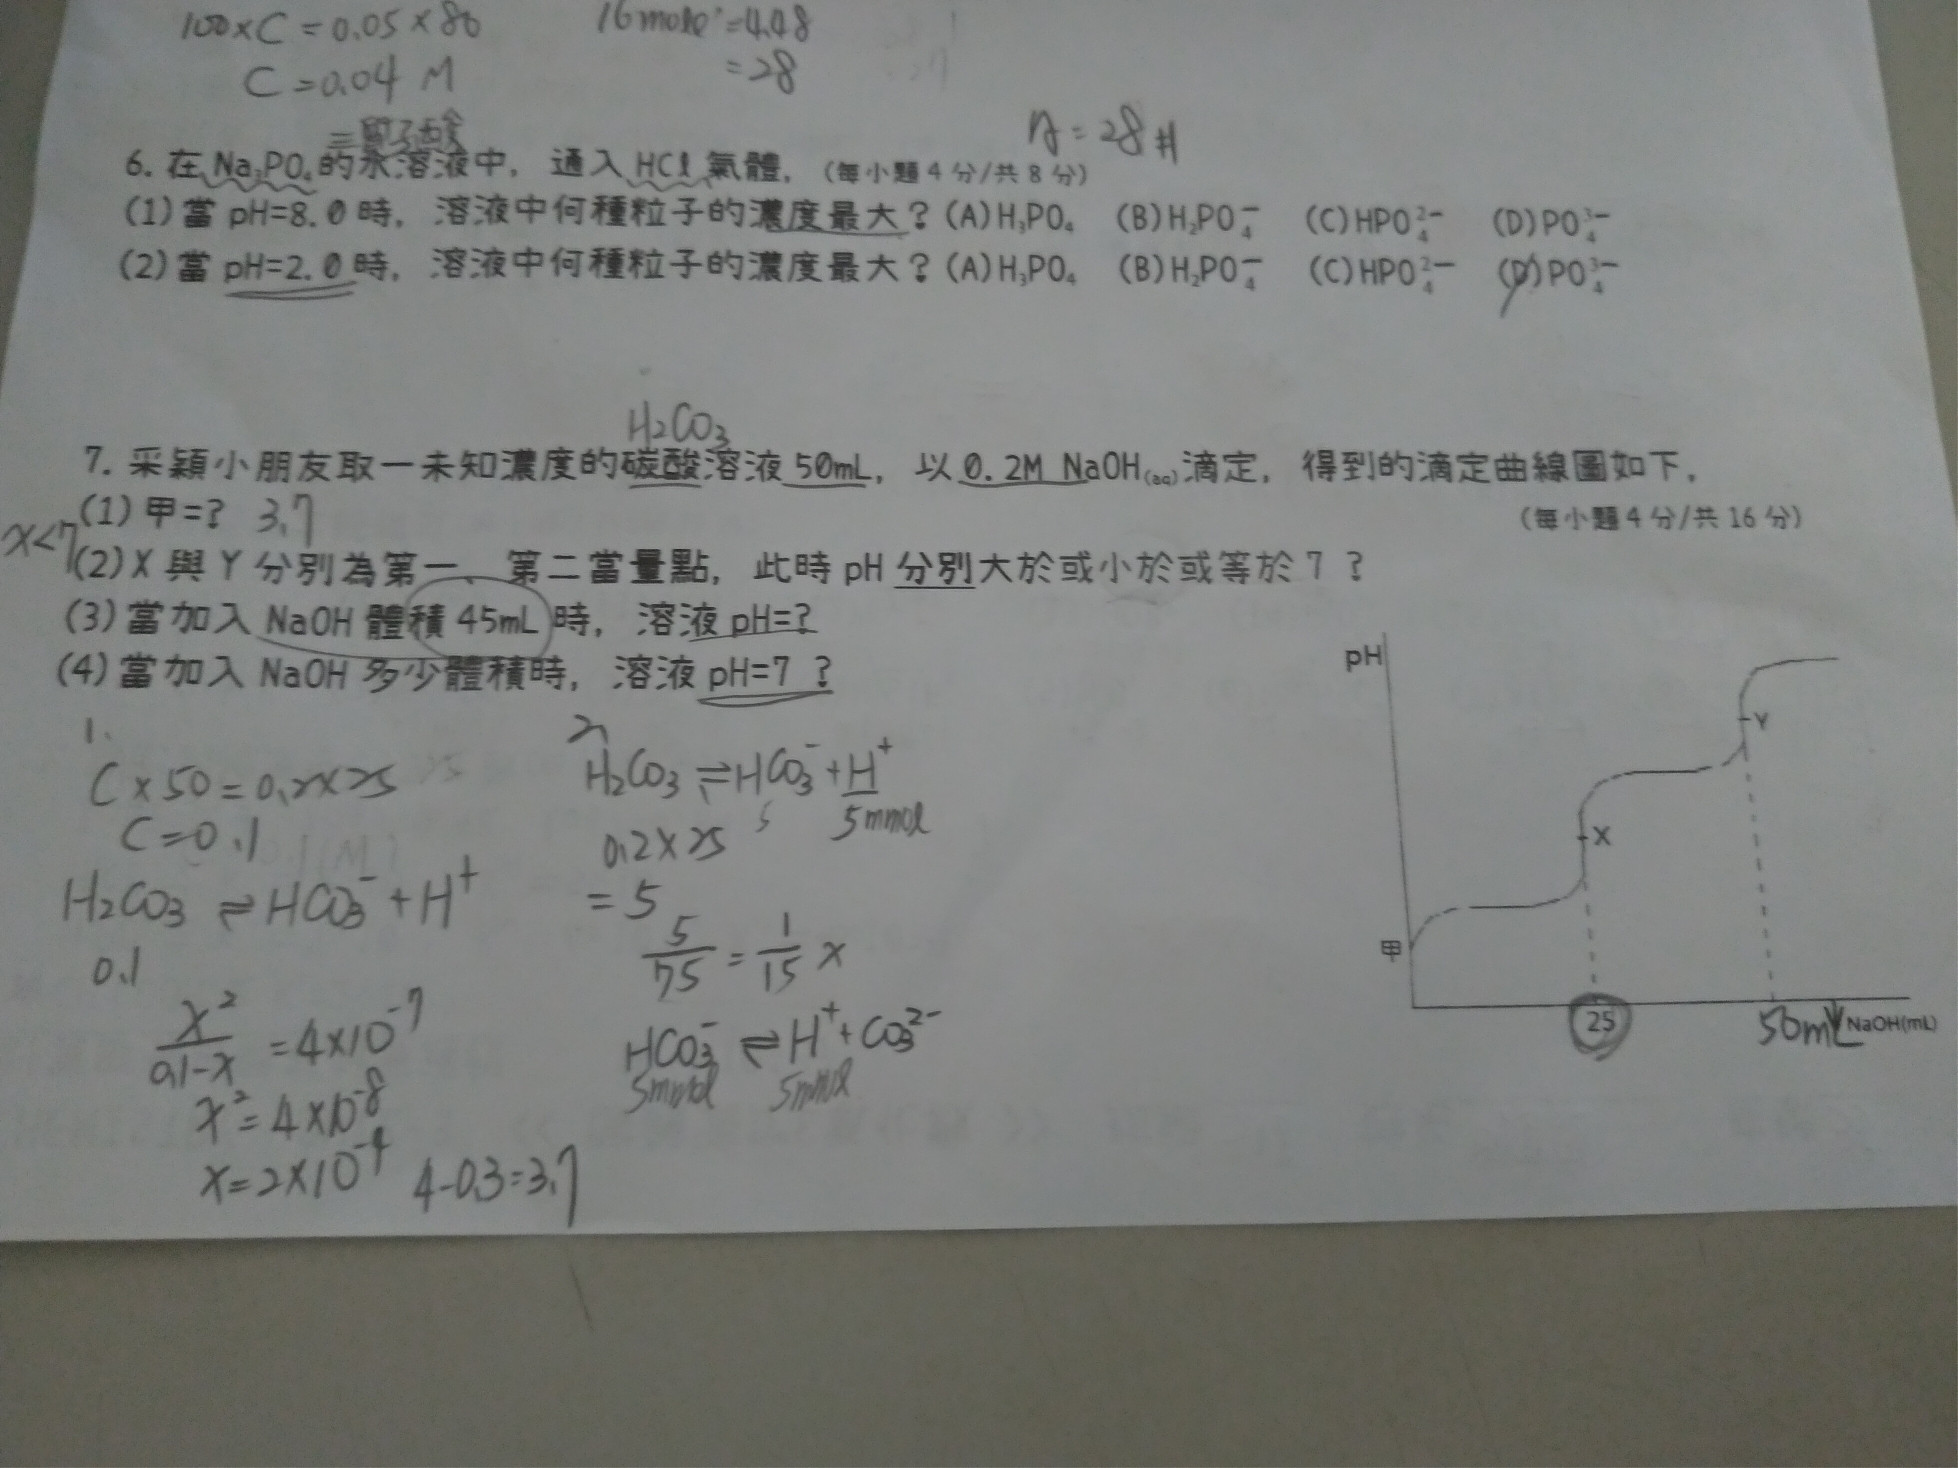 100×C=0.05×80
16mole=4.48
C=0.04 M
=28
A=28#
三質子酸
6. 在Na₃PO₄的水溶液中，通入HCl氣體．（每小題4分/共8分）
(1)當pH=8.0時，溶液中何種粒子的濃度最大？(A)H₃PO₄ (B)H₂PO₄⁻ (C)HPO₄²⁻ (D)PO₄³⁻
(2)當pH=2.0時，溶液中何種粒子的濃度最大？(A)H₃PO₄ (B)H₂PO₄⁻ (C)HPO₄²⁻ (D)PO₄³⁻
H₂CO₃
7. 采穎小朋友取一未知濃度的碳酸溶液50mL，以0.2M NaOH(aq)滴定，得到的滴定曲線圖如下．
(1)甲=? 3.7
（每小題4分/共16分）
x<7
(2)X與Y分別為第一、第二當量點，此時pH分別大於或小於或等於7？
(3)當加入NaOH體積45mL時，溶液pH=?
(4)當加入NaOH多少體積時，溶液pH=7？
1.
C×50=0.2×25
C=0.1
H₂CO₃⇌HCO₃⁻+H⁺
0.1
x²/0.1-x=4×10⁻⁷
x²=4×10⁻⁸
x=2×10⁻⁴ 4-0.3=3.7
2.
H₂CO₃⇌HCO₃⁻+H⁺
5 5mmol
0.2×25
=5
5/75=1/15 x
HCO₃⁻⇌H⁺+CO₃²⁻
5mmol 5mmol
pH
Y
X
甲
25
50mL
NaOH(mL)